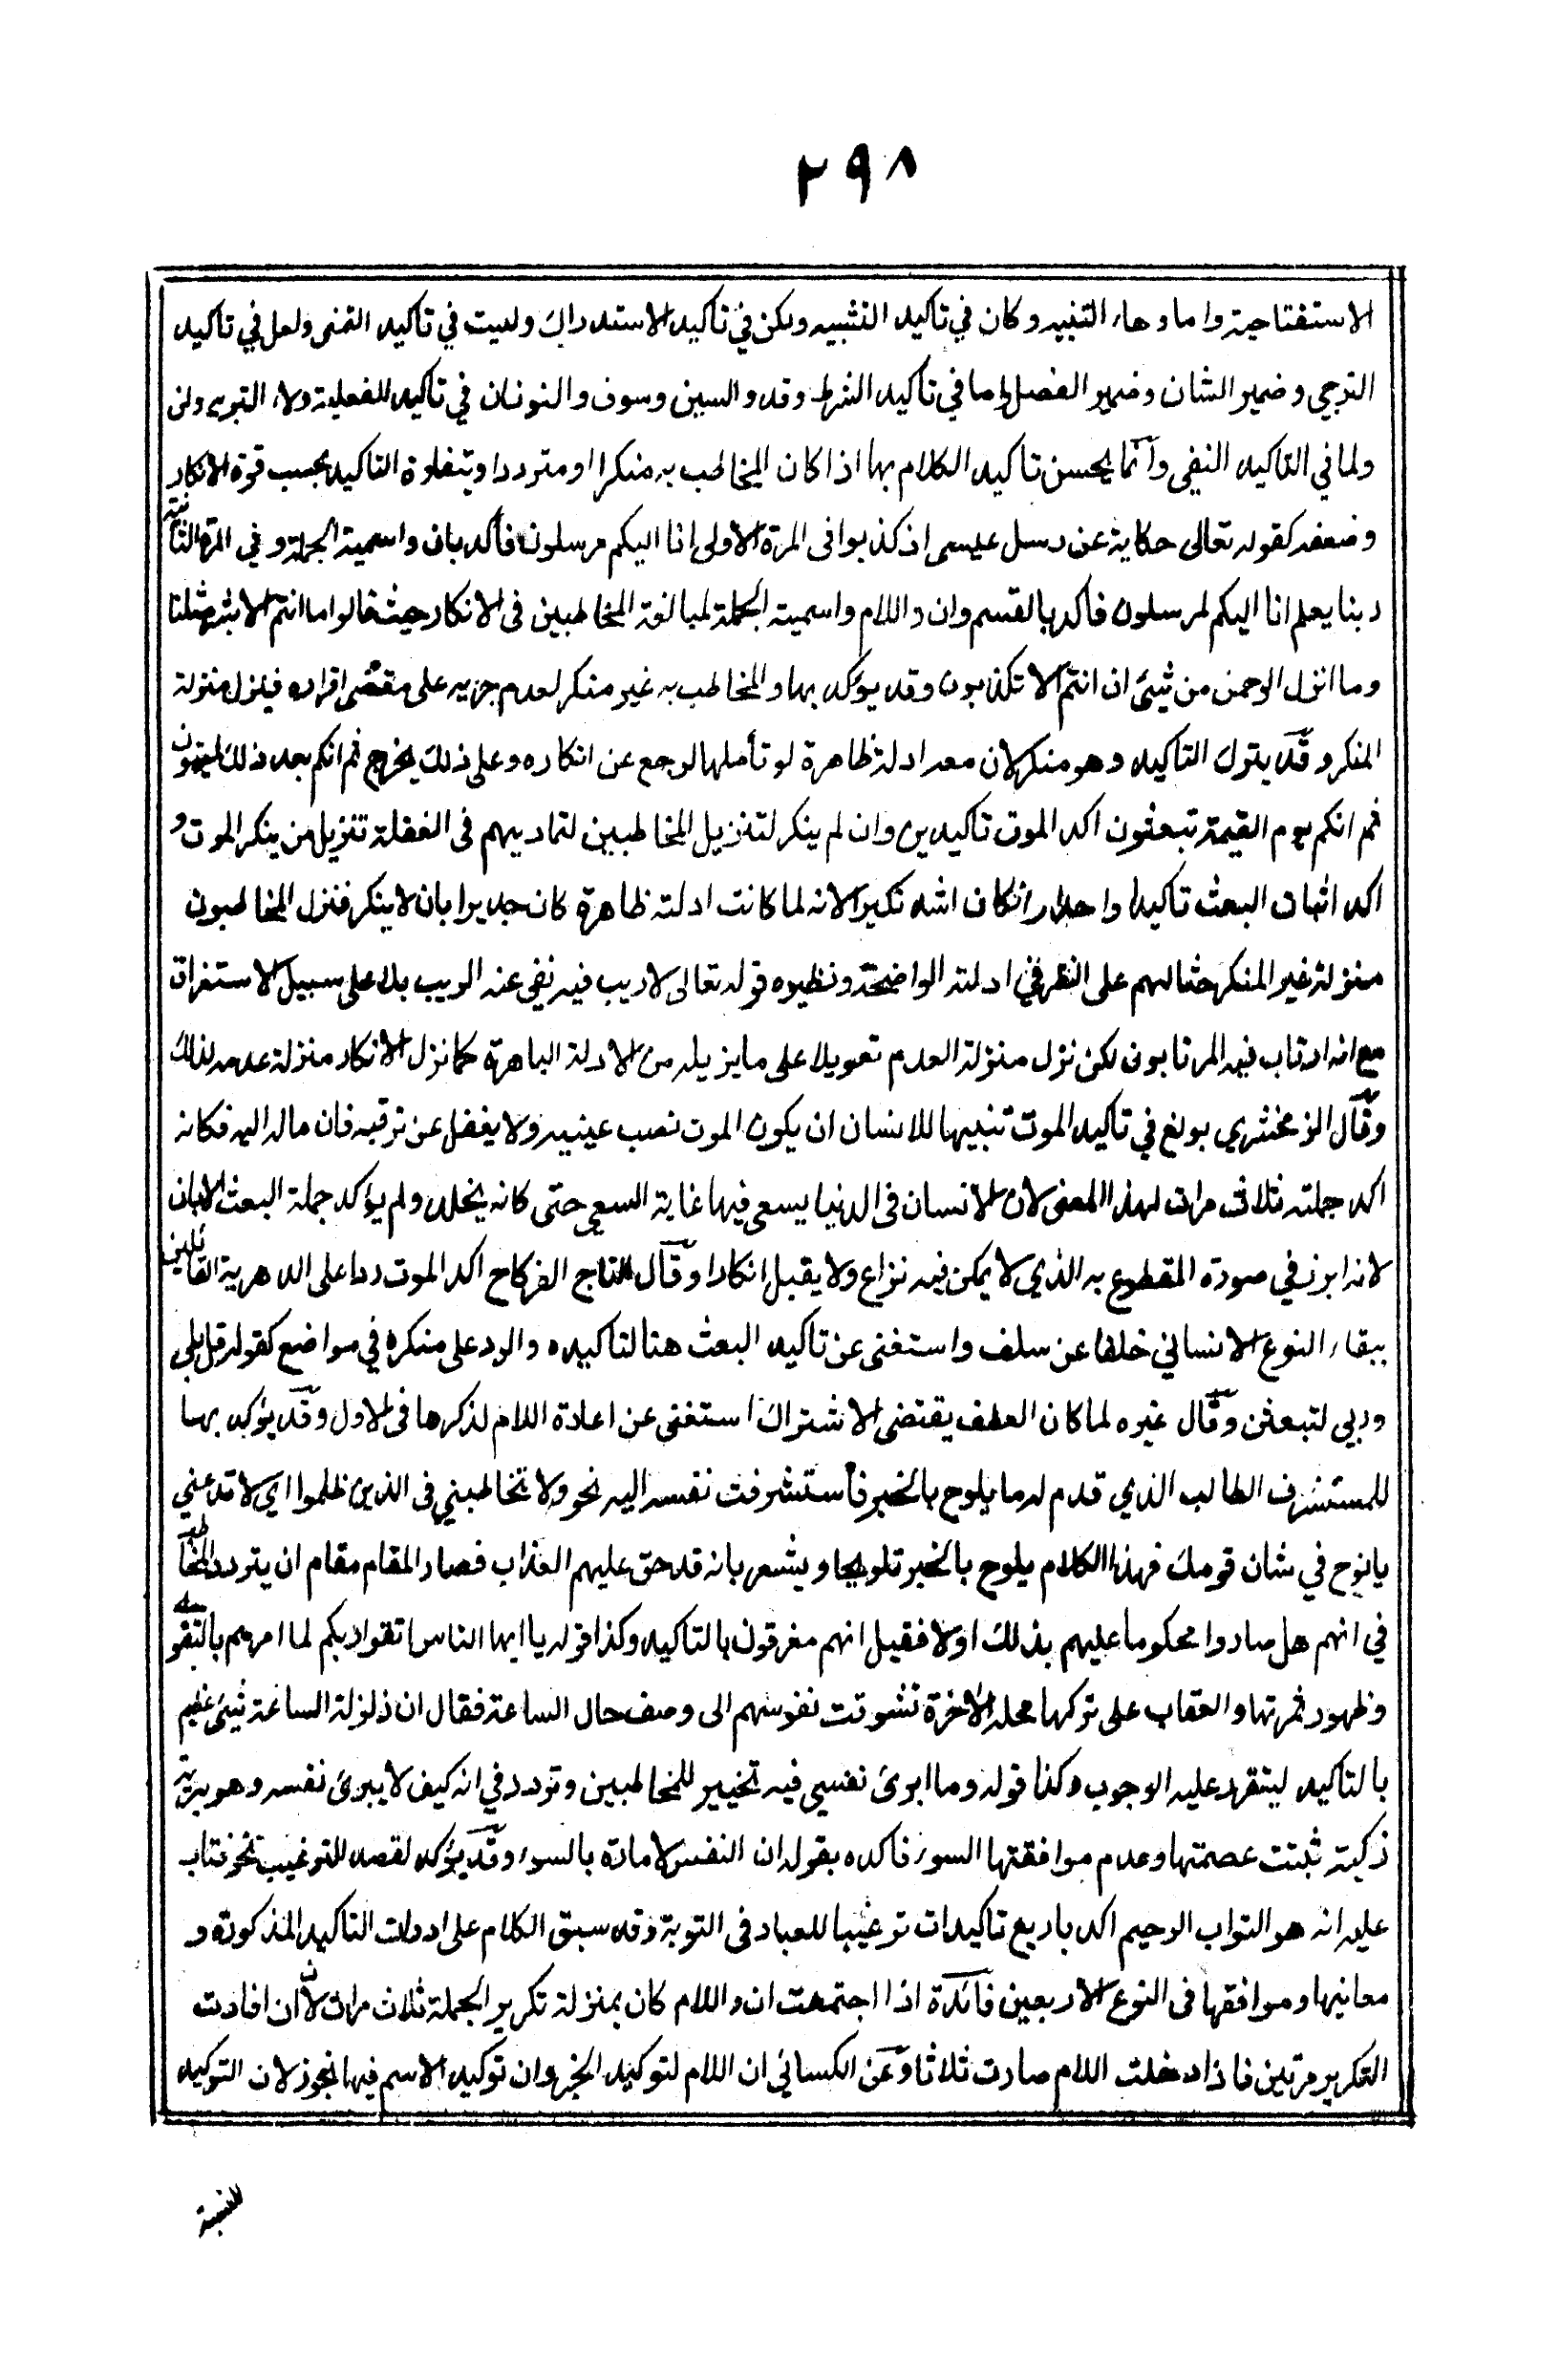 ٢٩٨
الاستفتاحية واما وهاء التنبيه وكان في تاكيد التشبيه ولكن في تاكيد الاستدراك وليت في تاكيد التمنى ولعل في تاكيد
الترجي وضمير الشان وضمير الفصل واما في تاكيد الشرط وقد والسين وسوف والنونان في تاكيد الفعلية ولاء التبريه ولن
ولما في التاكيد النفي وانما يحسن تاكيد الكلام بها اذا كان المخاطب به منكرا او مترددا ويتفاوة التاكيد بحسب قوة الانكار
وضعفه كقوله تعالى حكاية عن رسل عيسى اذ كذبوا فى المرة الاولى انا اليكم مرسلون فأكد بان واسمية الجملة وفي المرة الثانية
ربنا يعلم انا اليكم لمرسلون فاكد بالقسم وان واللام واسمية الجملة لمبالغة المخاطبين فى الانكار حيث قالوا ما انتم الا بشر مثلنا
وما انزل الرحمن من شيئ ان انتم الا تكذبون وقد يؤكد بها والمخاطب به غير منكر لعدم جريه على مقتضى اقراره فينزل منزلة
المنكر وقد يترك التاكيد وهو منكر لان معه ادلة ظاهرة لو تأملها لرجع عن انكاره وعلى ذلك يخرج ثم انكم بعد ذلك لميتون
ثم انكم يوم القيمة تبعثون اكد الموت تاكيدين وان لم ينكر لتنزيل المخاطبين لتماديهم فى الغفلة تنزيل من ينكر الموت و
اكد اثبات البعث تاكيدا واحدا وان كان اشد نكيرا لانه لما كانت ادلته ظاهرة كان جديرا بان لا ينكر فنزل المخاطبون
منزلة غير المنكر حثا لهم على النظر في ادلته الواضحة ونظيره قوله تعالى لا ريب فيه نفى عنه الريب بلا على سبيل الاستغراق
مع انه ارتاب فيه المرتابون لكن نزل منزلة العدم تعويلا على ما يزيله من الادلة الباهرة كما نزل الانكار منزلة عدمه لذلك
وقال الزمخشري بولغ في تاكيد الموت تنبيها للانسان ان يكون الموت نصب عينيه ولا يغفل عن ترقبه فان ماله اليه فكانه
اكد جملته ثلاث مرات لهذا المعنى لان الانسان فى الدنيا يسعى فيها غاية السعى حتى كانه يخلد ولم يؤكد جملة البعث الا بان
لانه ابرز في صورة المقطوع به الذي لا يمكن فيه نزاع ولا يقبل انكارا وقال التاج الفركاح اكد الموت ردا على الدهرية القائلين
ببقاء النوع الانساني خلفا عن سلف واستغنى عن تاكيد البعث هنا لتاكيده والرد على منكره في مواضع كقوله قل بلى
وربي لتبعثن وقال غيره لما كان العطف يقتضى الاشتراك استغنى عن اعادة اللام لذكرها فى الاول وقد يؤكد بها
للمستشرف الطالب الذي قدم له ما يلوح بالخبر فأستشرفت نفسه اليه نحو ولا تخاطبني فى الذين ظلموا اي لا تدعني
يا نوح في شان قومك فهذا الكلام يلوح بالخبر تلويحا ويشعر بانه قد حق عليهم العذاب فصار المقام مقام ان يتردد المخاطب
في انهم هل صاروا محكوما عليهم بذلك اولا فقيل انهم مغرقون بالتاكيد وكذا قوله يا ايها الناس اتقوا ربكم لما امرهم بالتقوى
وظهور ثمرتها والعقاب على تركها محله الاخرة تشوقت نفوسهم الى وصف حال الساعة فقال ان زلزلة الساعة شيئ عظيم
بالتاكيد ليتقرر عليه الوجوب وكذا قوله وما ابرئ نفسي فيه تحيير للمخاطبين وتردد في انه كيف لا يبرئ نفسه وهو برية
زكية ثبتت عصمتها وعدم موافقتها السوء فاكده بقوله ان النفس لامارة بالسوء وقد يؤكد لقصد الترغيب نحو فتاب
عليه انه هو التواب الرحيم اكد باربع تاكيدات ترغيبا للعباد فى التوبة وقد سبق الكلام على ادوات التاكيد المذكورة و
معانيها ومواقعها فى النوع الاربعين فائدة اذا اجتمعت ان واللام كان بمنزلة تكرير الجملة ثلاث مرات لأن ان افادت
التكرير مرتين فاذا دخلت اللام صارت ثلاثا وعن الكسائي ان اللام لتوكيد الخبر وان توكيد الاسم فيها تجوز لان التوكيد
للنسبة